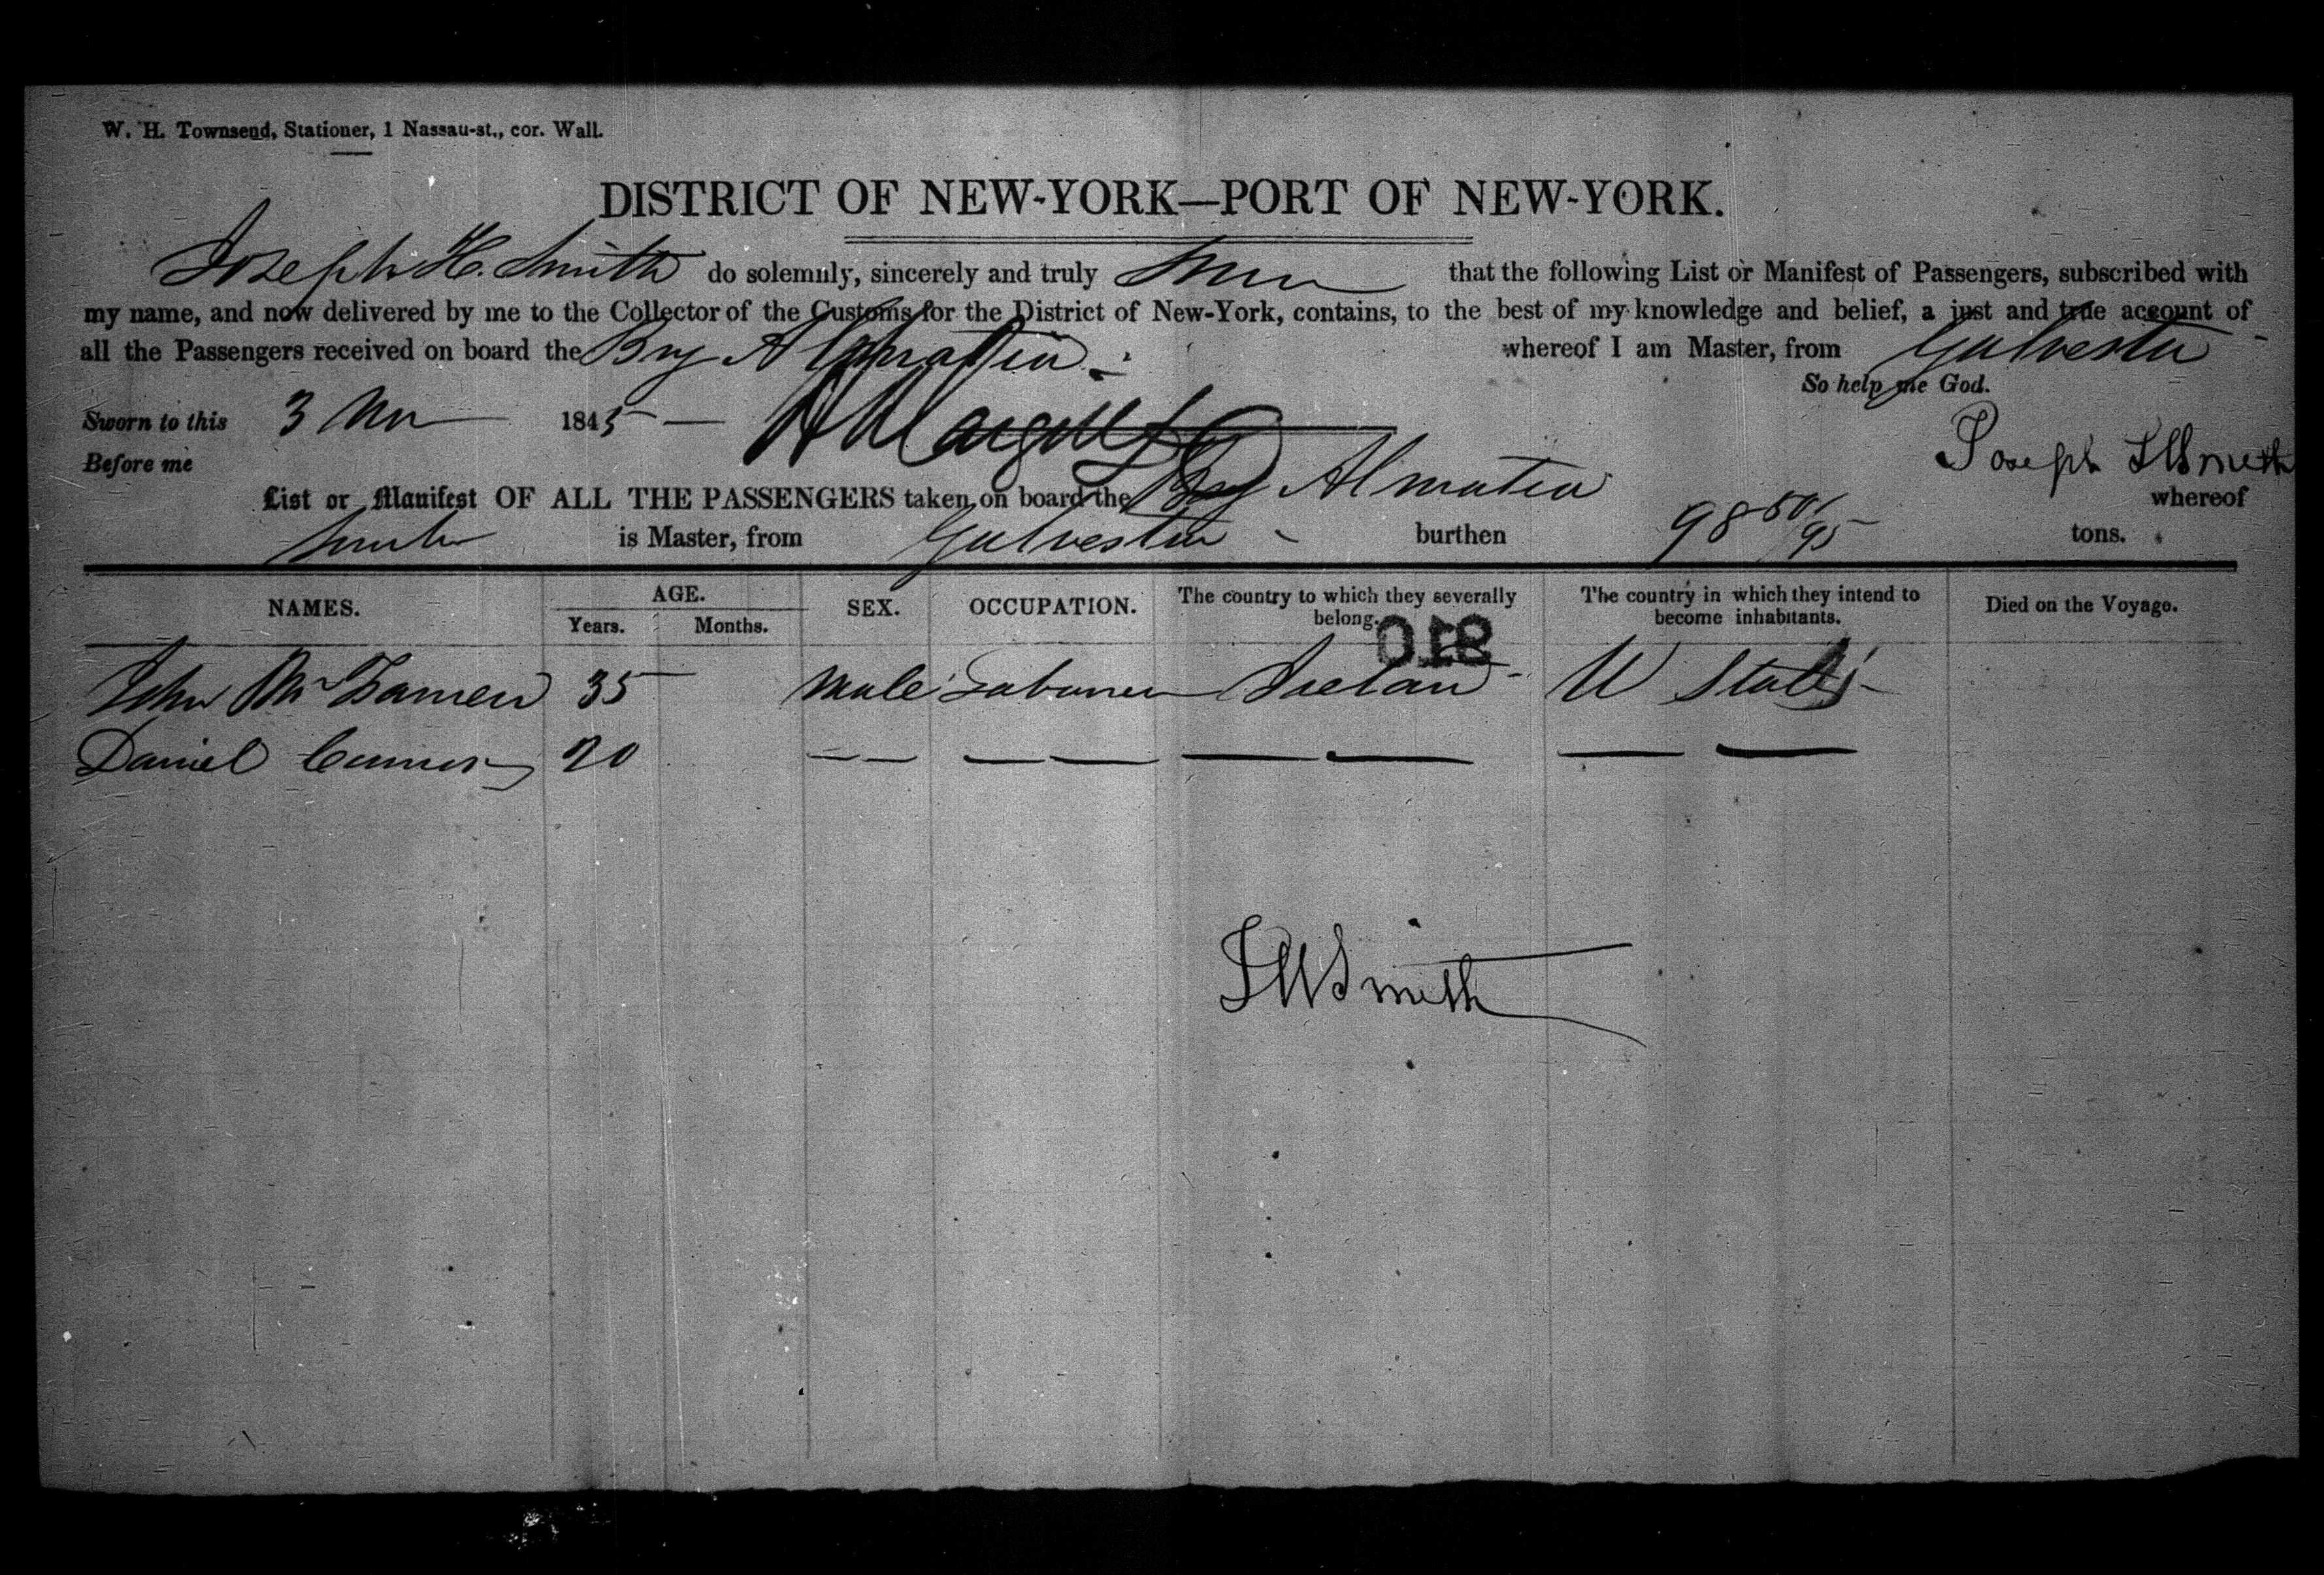 W. H. Townsend, Stationer, 1 Nassau-st., cor. Wall.
DISTRICT OF NEW-YORK—PORT OF NEW-YORK.
Joseph H. Smith do solemnly, sincerely and truly that the following List or Manifest of Passengers, subscribed with
my name, and now delivered by me to the Collector of the Customs for the District of New-York, contains, to the best of my knowledge and belief, a just and true account of
all the Passengers received on board the Brig whereof I am Master, from Galveston
So help me God.
Sworn to this 3 Nov 1845
Before me
Joseph H Smith
List or Manifest OF ALL THE PASSENGERS taken on board the Brig whereof
Smith is Master, from Galveston burthen 98 /95 tons.
NAMES. AGE. SEX. OCCUPATION. The country to which they severally belong. The country in which they intend to become inhabitants. Died on the Voyage.
Years. Months.
018
John Mc 35 Male Labourer Ireland U States
Daniel 20 — — — — — — — —
J H Smith